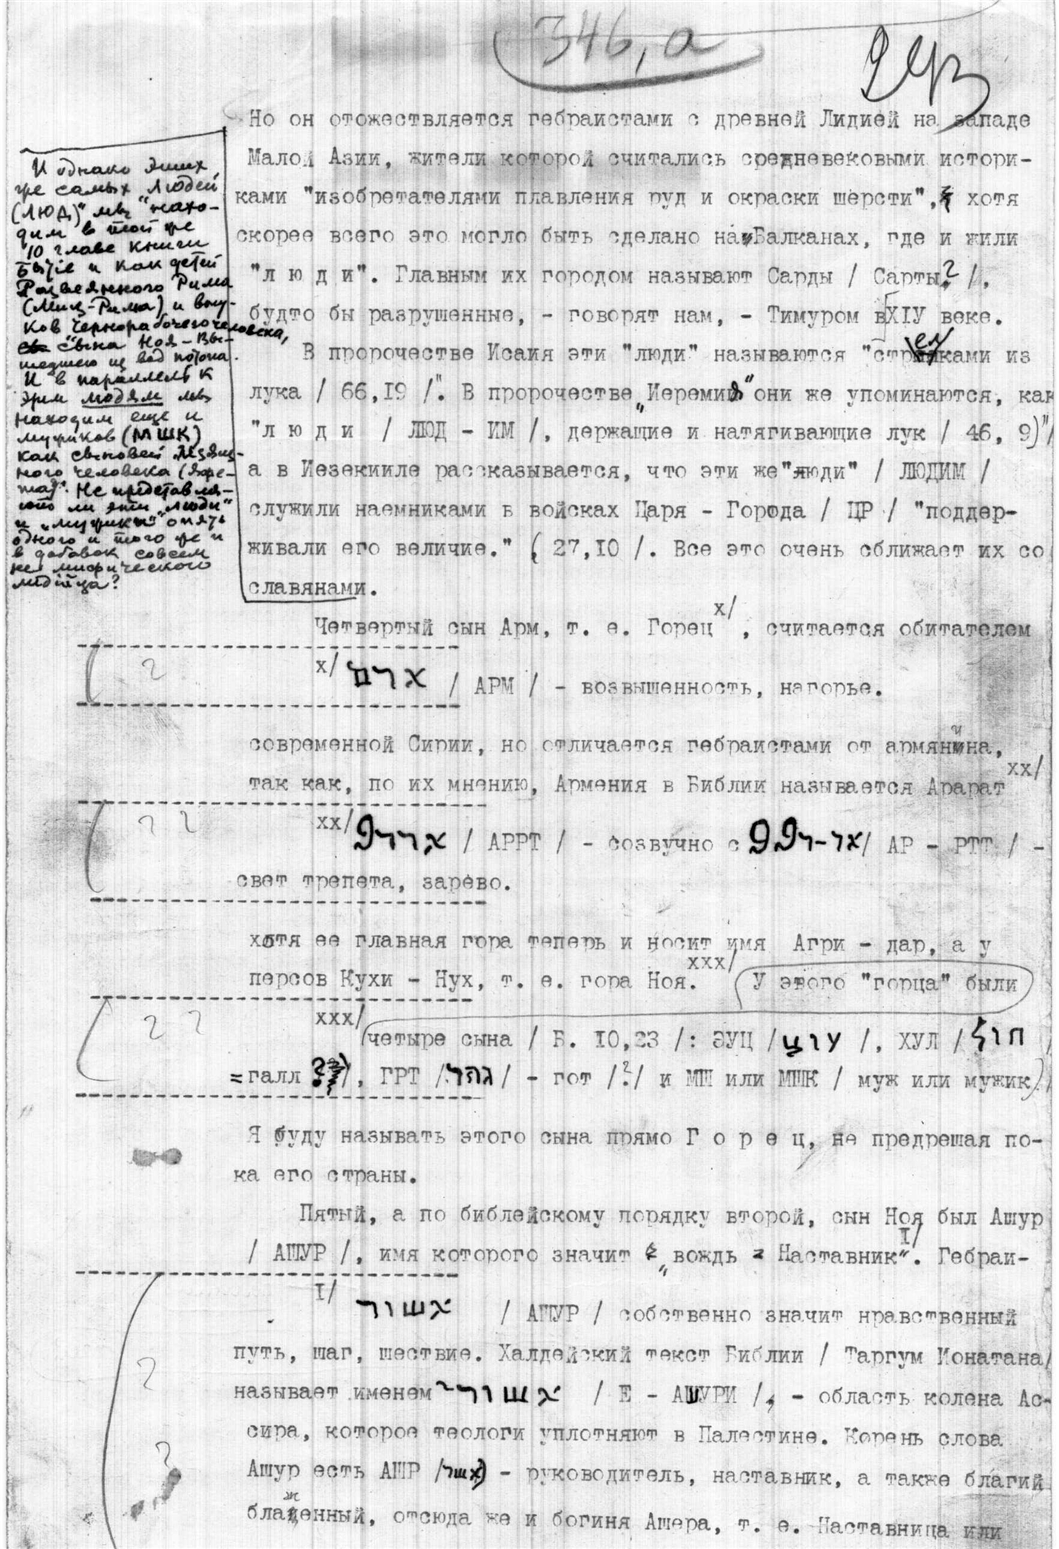 346,а
293
Но он отожествляется гебраистами с древней Лидией на западе
Малой Азии, жители которой считались средневековыми истори-
ками "изобретателями плавления руд и окраски шерсти", хотя
скорее всего это могло быть сделано на Балканах, где и жили
"л ю д и". Главным их городом называют Сарды / Сарты? /,
будто бы разрушенные, - говорят нам, - Тимуром в XIV веке.
В пророчестве Исаия эти "люди" называются "стрелками из
лука / 66,19 /". В пророчестве „Иеремия" они же упоминаются, как
"л ю д и / ЛЮД - ИМ /, держащие и натягивающие лук / 46, 9)"/
а в Иезекииле рассказывается, что эти же "люди" / ЛЮДИМ /
служили наемниками в войсках Царя - Города / ЦР / "поддер-
живали его величие." ( 27,10 /. Все это очень сближает их со
славянами.
И однако этих
же самых людей
(ЛЮД)" мы "нахо-
дим в той же
10 главе книги
Бытие и как детей
Рассеянного Рима
(Миц-Рима) и вну-
ков Чернорабочего человека,
сына Ноя - Вы-
шедшего из вод потопа.
И в параллель к
этим людям мы
находим еще и
мужиков (МШК)
как сыновей
ного человека (Яфе-
та)". Не представля-
ют ли эти „люди"
и „мужики" опять
одного и того же и
в добавок совсем
не мифического
Четвертый сын Арм, т. е. Горец х/, считается обитателем
х/ ארם / АРМ / - возвышенность, нагорье.
современной Сирии, но отличается гебраистами от армянина,
так как, по их мнению, Армения в Библии называется Арарат хх/
хх/ אררט / АРРТ / - созвучно с אר-רטט / АР - РТТ / -
свет трепета, зарево.
хотя ее главная гора теперь и носит имя Агри - дар, а у
персов Кухи - Нух, т. е. гора Ноя. ххх/ У этого "горца" были
ххх/ четыре сына / Б. 10,23 /: ЭУЦ / עוצ /, ХУЛ / חול /
= галл ? /, ГРТ / גתר / - гот /?/ и МШ или МШК / муж или мужик) /
Я буду называть этого сына прямо Г о р е ц, не предрешая по-
ка его страны.
Пятый, а по библейскому порядку второй, сын Ноя был Ашур
/ АШУР /, имя которого значит „вождь - Наставник" I/. Гебраи-
I/ אשור / АШУР / собственно значит нравственный
путь, шаг, шествие. Халдейский текст Библии / Таргум Ионатана/
называет именем אשור- / Е - АШУРИ /, - область колена Ас-
сира, которое теологи уплотняют в Палестине. Корень слова
Ашур есть АШР /אשר) - руководитель, наставник, а также благий
блаженный, отсюда же и богиня Ашера, т. е. Наставница или